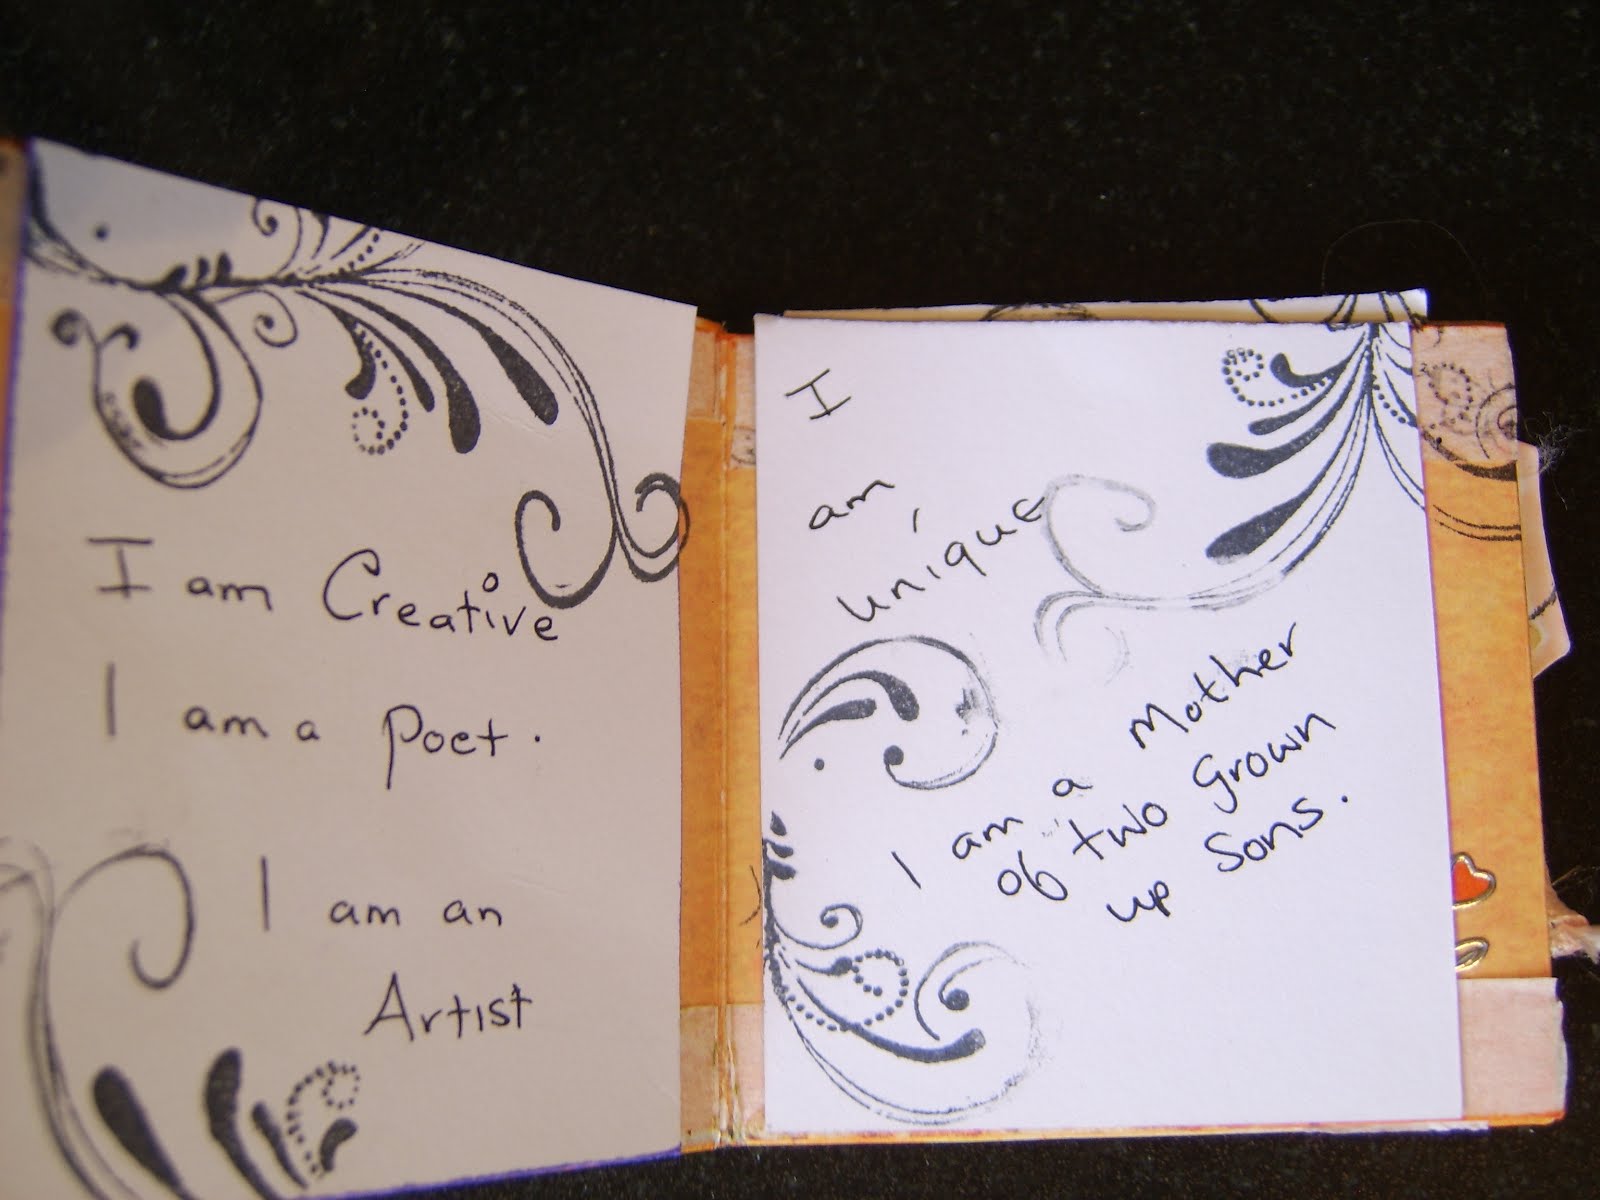 I am Creative
I am a Poet.
I am an
Artist
I
am
unique
I am a Mother
of two Grown
up Sons.